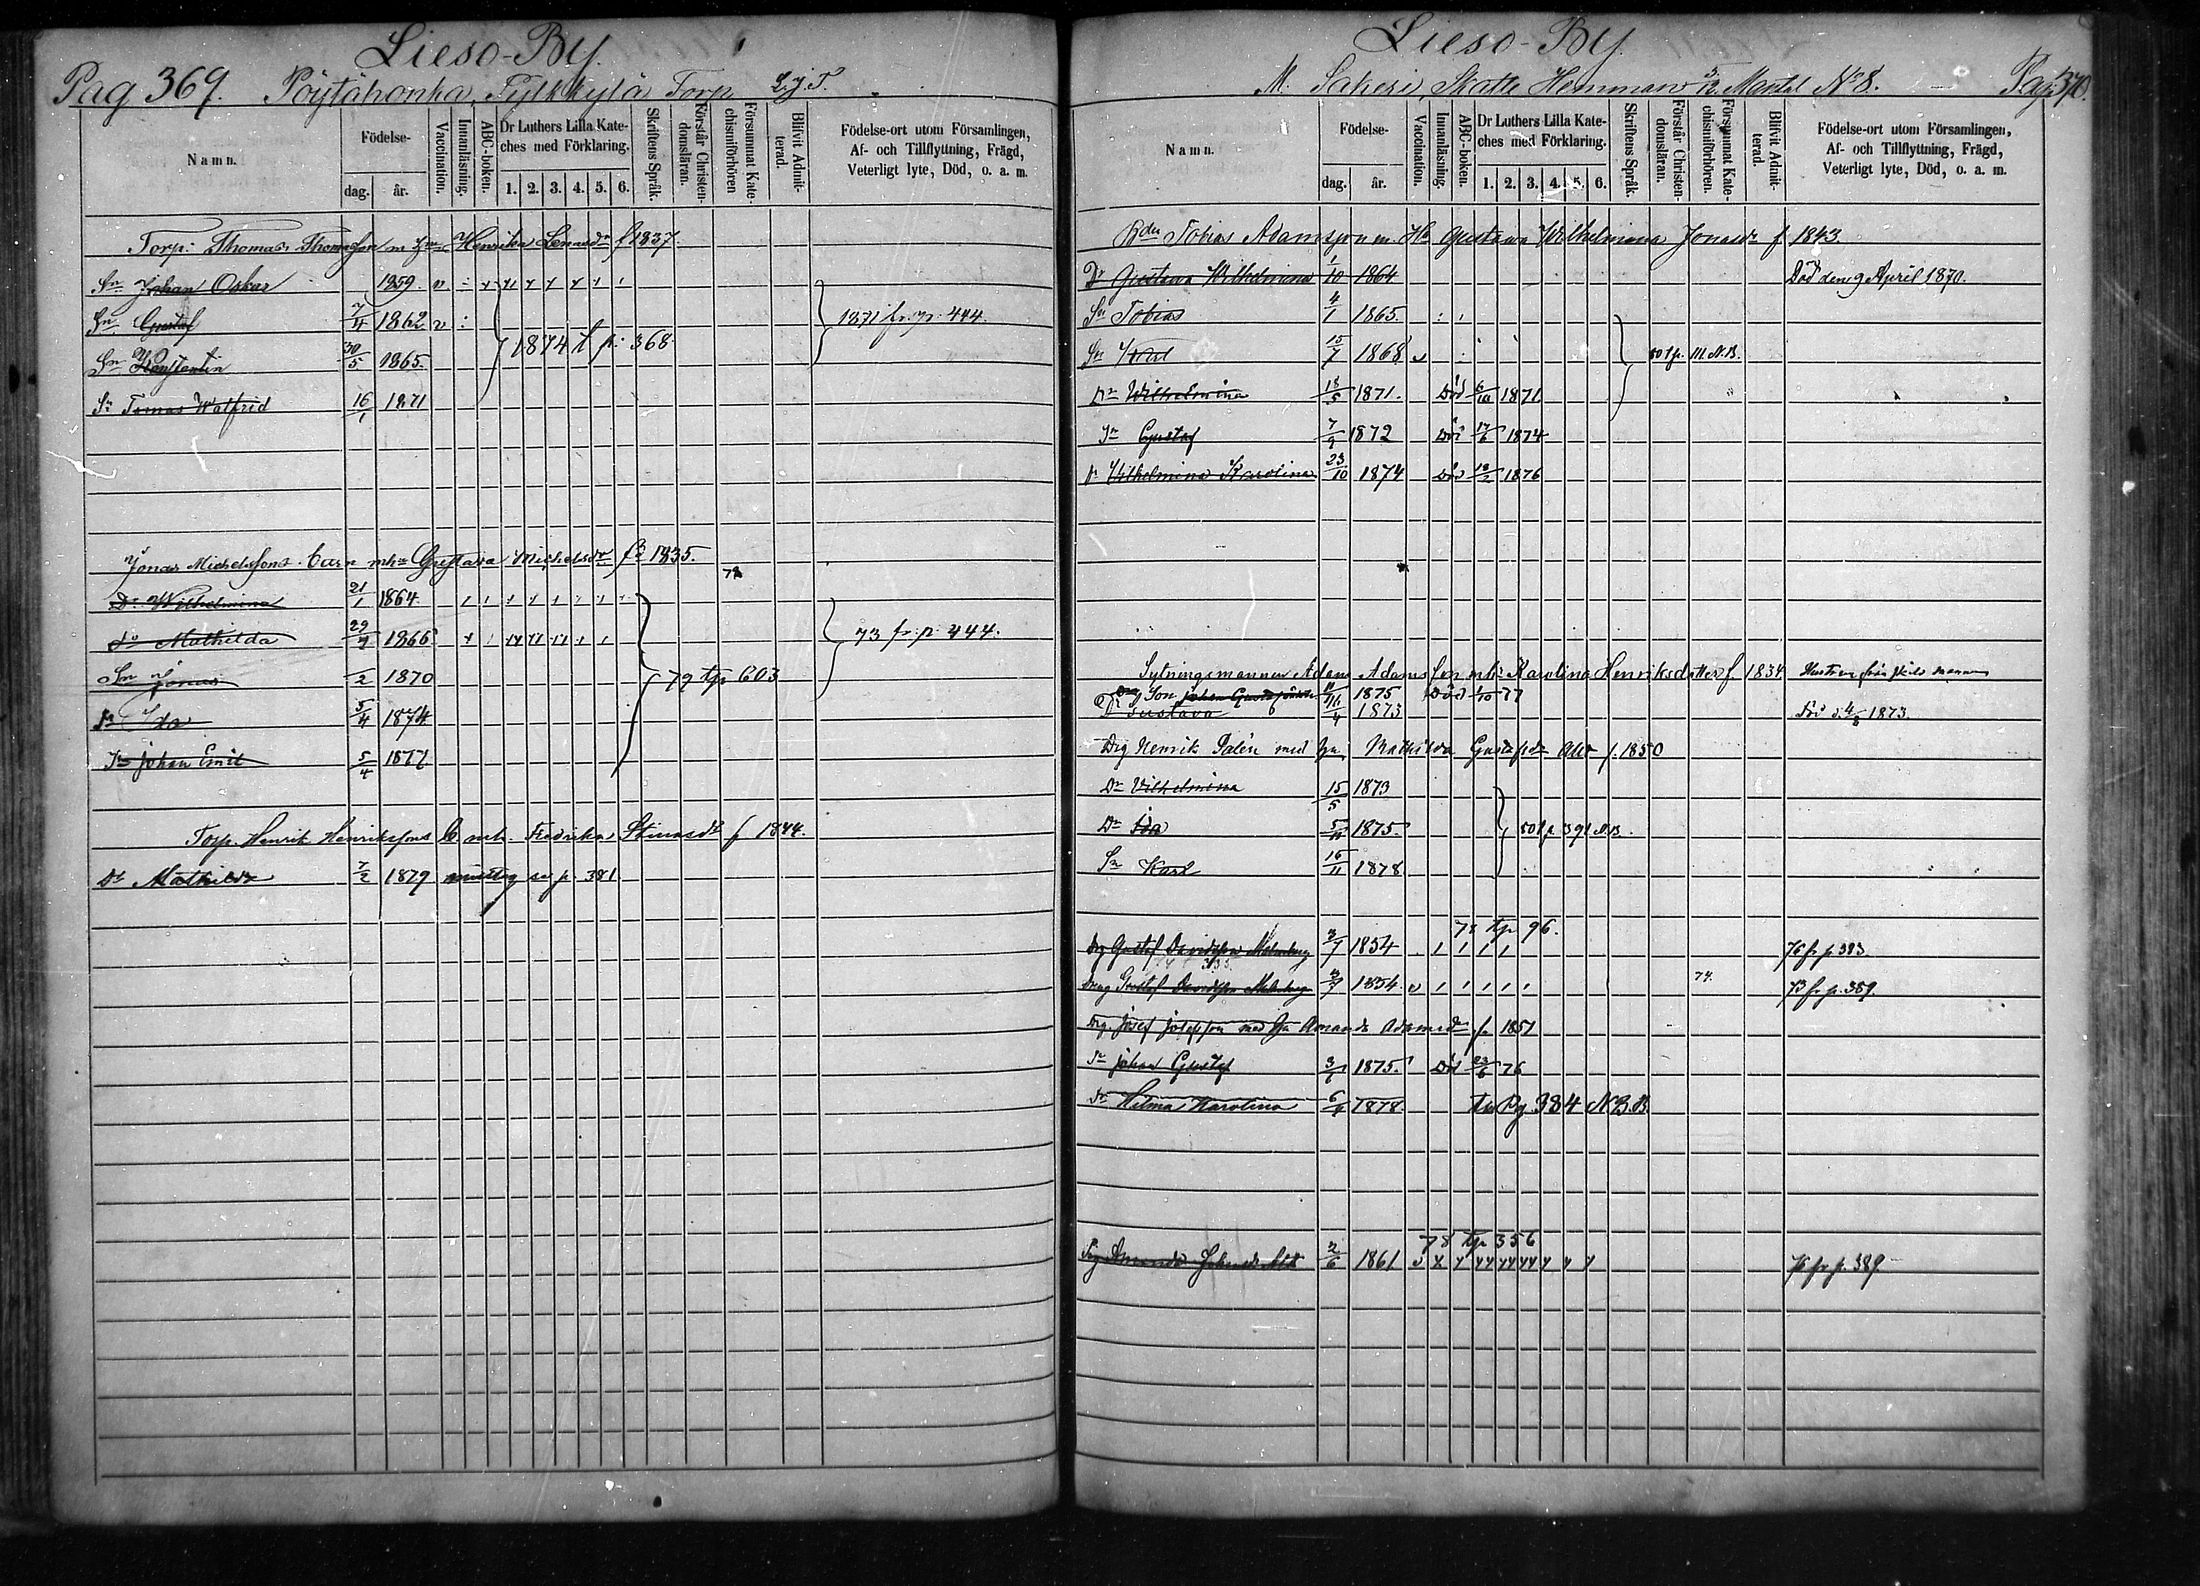 Lieso-By.
Pag 369. Pöytähonka, Torp
Namn.
Födelse-
dag.
år.
Vaccination.
Innanläsning.
ABC-boken.
Dr Luthers Lilla Kate-
ches med Förklaring.
1. 2. 3. 4. 5. 6.
Skriftens Språk.
Förstår Christen-
domsläran.
Försummat Kate-
chismiförhören
Blifvit Admit-
terad.
Födelse-ort utom Församlingen,
Af- och Tillflyttning, Frägd,
Veterligt lyte, Död, o. a. m.
Torp: Thomas Thomasson m hu Henrika Lenasdr f 1837.
Sn Johan Oskar 1859 v
Sn Gustaf 7/4 1862 v 1871 fr. p. 444.
Sn Konstantin 30/5 1865. 1874 t p: 368
Sn Tomas Walfrid 16/1 1871
Jonas Michelssons barn mhu Gustava Michelsdr f 1835.
78
Dr Wilhelmina 21/1 1864
Dr Mathilda 29/9 1866 73 fr. p. 444.
Sn Jonas /2 1870 79 tp 603
Dr Ida 5/4 1874
Sn Johan Emil 5/4 1877
Torp. Henrik Henrikssons b mh. Fredrika Stinasdr f 1844.
Dr Mathilda 7/2 1879 se p. 381
Lieso-By.
M. Sakeri, Skatte Hemman Mantal No 8. Pag. 370.
Namn.
Födelse-
dag.
år.
Vaccination.
Innanläsning.
ABC-boken.
Dr Luthers Lilla Kate-
ches med Förklaring.
1. 2. 3. 4. 5. 6.
Skriftens Språk.
Förstår Christen-
domsläran.
Försummat Kate-
chismiförhören.
Blifvit Admit-
terad.
Födelse-ort utom Församlingen,
Af- och Tillflyttning, Frägd,
Veterligt lyte, Död, o. a. m.
Bdn Tobias Adamsson m. Hu Gustava Wilhelmina Jonasdr f 1843.
Dr Gustava Wilhelmina 1/10 1864 Död den 9 April 1870.
Sn Tobias 4/1 1865.
Sn Karl 15/7 1868 v N.B.
Dr Wilhelmina 18/5 1871. Död 6/10 1871
Sn Gustaf 7/9 1872 Död 17/6 1874
Dr Wilhelmina Karolina 23/10 1874 Död 18/2 1876
Sytningsmannen Adam Adamsson mh: Karolina Henriksdotter f 1834
Son Johan 1875 Död 1/10 77
Dr Gustava /4 1873 Död d. 4/8 1873.
Drg Henrik Palén med hu Mathilda Gustafsdr f. 1850
Dr Vilhelmina 15/5 1873
Dr Ida 5/11 1875. 391 N.B.
Sn Karl 16/11 1878
78 tp 96.
Drg Gustaf Davidsson Malmberg 3/7 1854 76 fr p 383
Dreng Gustaf Davidsson Malmberg 3/7 1854 v 74. 73 fr. p. 359.
Drg. Josef Josefsson med hu Amanda Adamsdr f. 1851
Sn Johan Gustaf 3/6 1875. Död 23/6 76
Dr Hilma Karolina 6/4 1878. Pg 384 N.B.B.
78 tp 356
Pig Amanda 2/6 1861 76 fr p. 389.